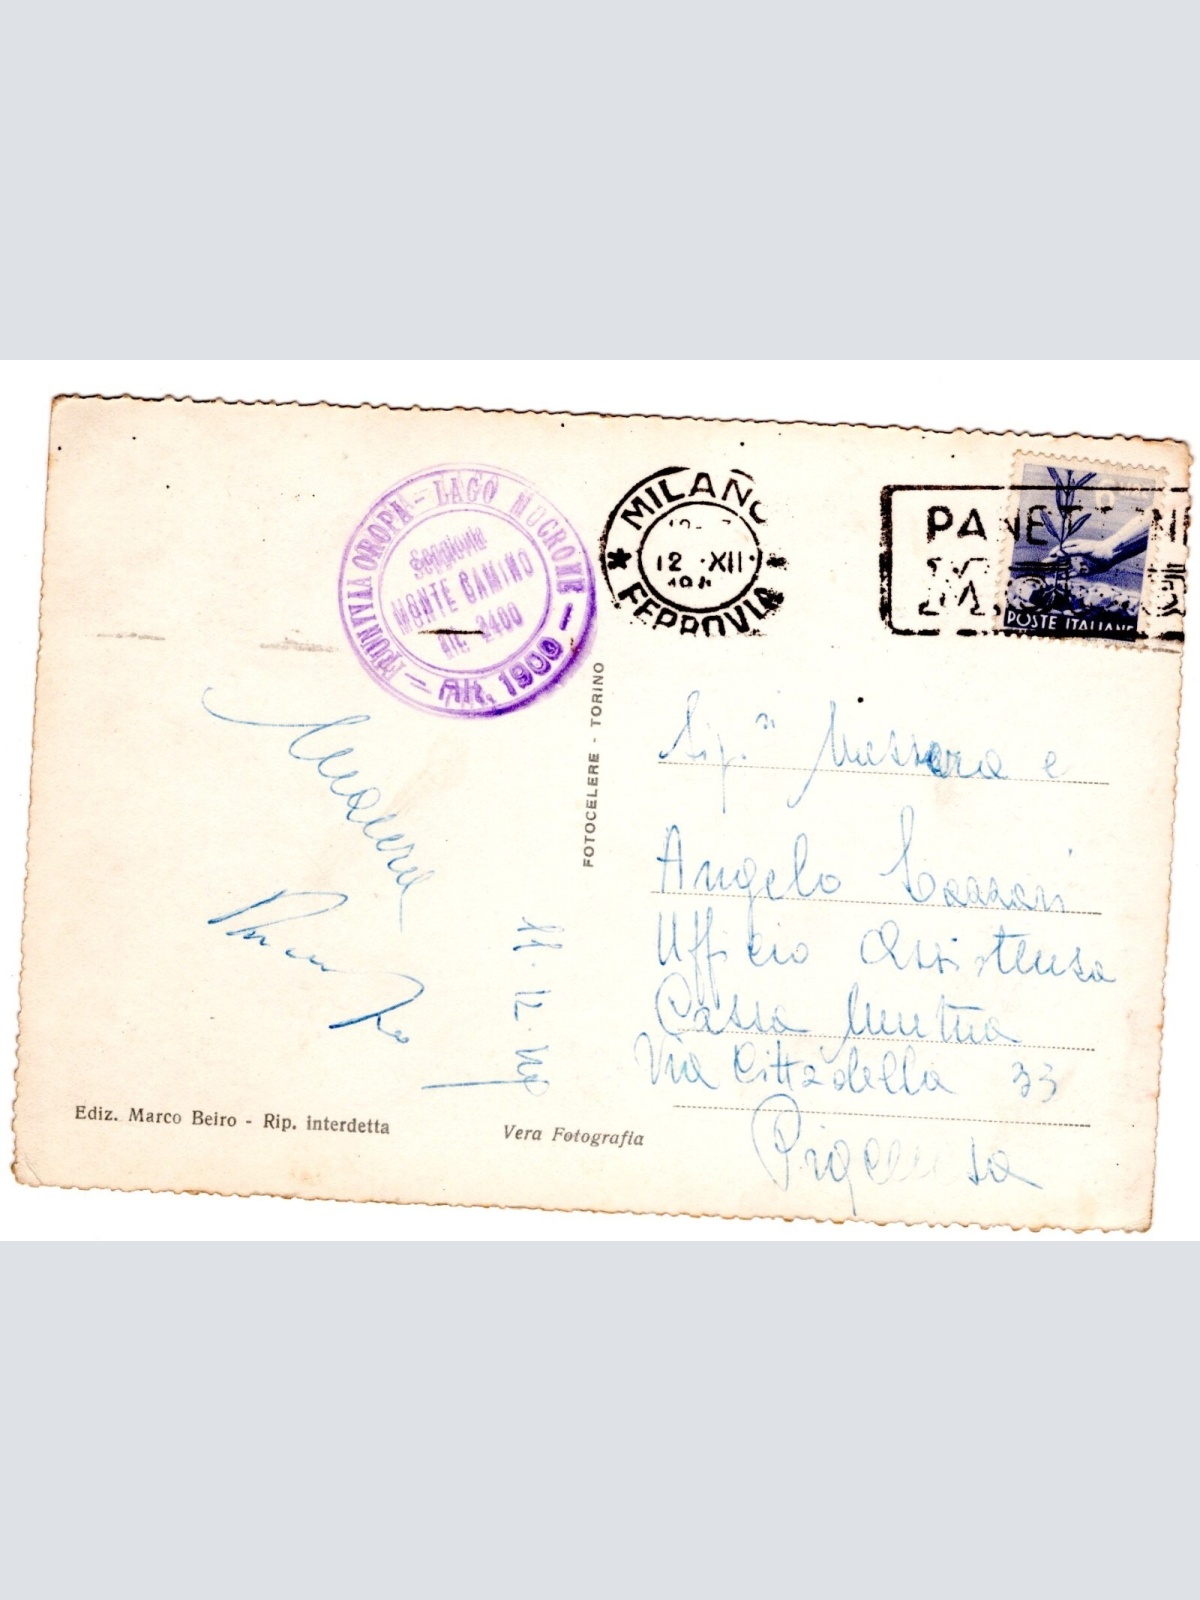 FUNIVIA OROPA - LAGO MUCRONE - Alt. 1900 -
Seggiovia
MONTE CAMINO
Alt. 2400
MILANO
12 ·XII·
FERROVIA
POSTE ITALIANE
FOTOCELERE - TORINO
Sig.ri Massara e
Angelo
Ufficio Assistenza
Cassa Mutua
Via Cittadella 33
11·12·
Ediz. Marco Beiro - Rip. interdetta
Vera Fotografia